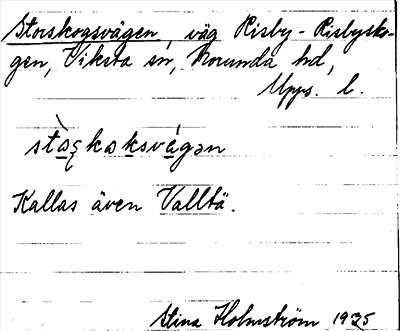 Storskogsvägen, väg Risby - Risbysko-
gen, Viksta sn, Norunda hd,
Upps. l.
stàskəksvágən
Kallas även Valltä.
Stina Holmström 1935